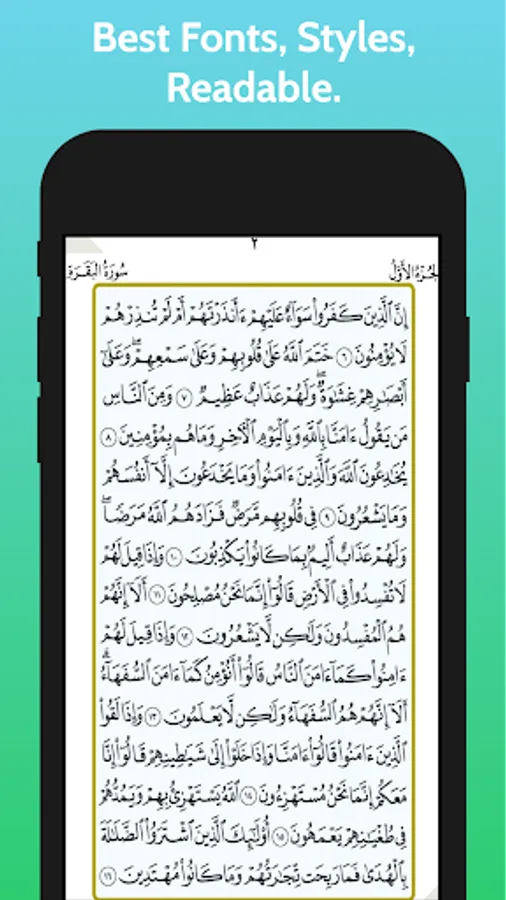 Best Fonts, Styles,
Readable.
٢
الجُزْءُ الأَوَّلُ
سُورَةُ البَقَرَةِ
إِنَّ ٱلَّذِينَ كَفَرُواْ سَوَآءٌ عَلَيْهِمْ ءَأَنذَرْتَهُمْ أَمْ لَمْ تُنذِرْهُمْ
لَا يُؤْمِنُونَ ٦ خَتَمَ ٱللَّهُ عَلَىٰ قُلُوبِهِمْ وَعَلَىٰ سَمْعِهِمْۖ وَعَلَىٰٓ
أَبْصَـٰرِهِمْ غِشَـٰوَةٌۖ وَلَهُمْ عَذَابٌ عَظِيمٌ ٧ وَمِنَ ٱلنَّاسِ
مَن يَقُولُ ءَامَنَّا بِٱللَّهِ وَبِٱلْيَوْمِ ٱلْأٓخِرِ وَمَا هُم بِمُؤْمِنِينَ ٨
يُخَـٰدِعُونَ ٱللَّهَ وَٱلَّذِينَ ءَامَنُواْ وَمَا يَخْدَعُونَ إِلَّآ أَنفُسَهُمْ
وَمَا يَشْعُرُونَ ٩ فِى قُلُوبِهِم مَّرَضٌ فَزَادَهُمُ ٱللَّهُ مَرَضًاۖ
وَلَهُمْ عَذَابٌ أَلِيمٌۢ بِمَا كَانُواْ يَكْذِبُونَ ١٠ وَإِذَا قِيلَ لَهُمْ
لَا تُفْسِدُواْ فِى ٱلْأَرْضِ قَالُوٓاْ إِنَّمَا نَحْنُ مُصْلِحُونَ ١١ أَلَآ إِنَّهُمْ
هُمُ ٱلْمُفْسِدُونَ وَلَـٰكِن لَّا يَشْعُرُونَ ١٢ وَإِذَا قِيلَ لَهُمْ
ءَامِنُواْ كَمَآ ءَامَنَ ٱلنَّاسُ قَالُوٓاْ أَنُؤْمِنُ كَمَآ ءَامَنَ ٱلسُّفَهَآءُۗ
أَلَآ إِنَّهُمْ هُمُ ٱلسُّفَهَآءُ وَلَـٰكِن لَّا يَعْلَمُونَ ١٣ وَإِذَا لَقُواْ
ٱلَّذِينَ ءَامَنُواْ قَالُوٓاْ ءَامَنَّا وَإِذَا خَلَوْاْ إِلَىٰ شَيَـٰطِينِهِمْ قَالُوٓاْ إِنَّا
مَعَكُمْ إِنَّمَا نَحْنُ مُسْتَهْزِءُونَ ١٤ ٱللَّهُ يَسْتَهْزِئُ بِهِمْ وَيَمُدُّهُمْ
فِى طُغْيَـٰنِهِمْ يَعْمَهُونَ ١٥ أُوْلَـٰٓئِكَ ٱلَّذِينَ ٱشْتَرَوُاْ ٱلضَّلَـٰلَةَ
بِٱلْهُدَىٰ فَمَا رَبِحَت تِّجَـٰرَتُهُمْ وَمَا كَانُواْ مُهْتَدِينَ ١٦